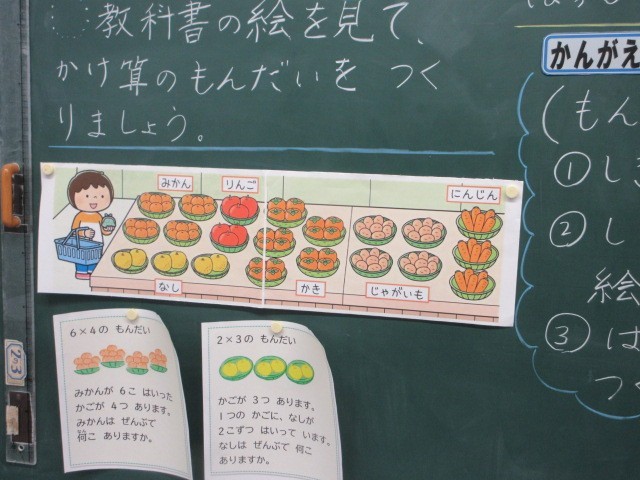 教科書の絵を見て、
かけ算のもんだいを つく
りましょう。
みかん
りんご
にんじん
なし
かき
じゃがいも
6×4の もんだい
みかんが 6こ はいった
かごが 4つ あります。
みかんは ぜんぶで
何こ ありますか。
2×3の もんだい
かごが 3つ あります。
1つの かごに、なしが
2こずつ はいって います。
なしは ぜんぶで 何こ
ありますか。
かんがえ
(もん
①し
②し
絵
③は
つ